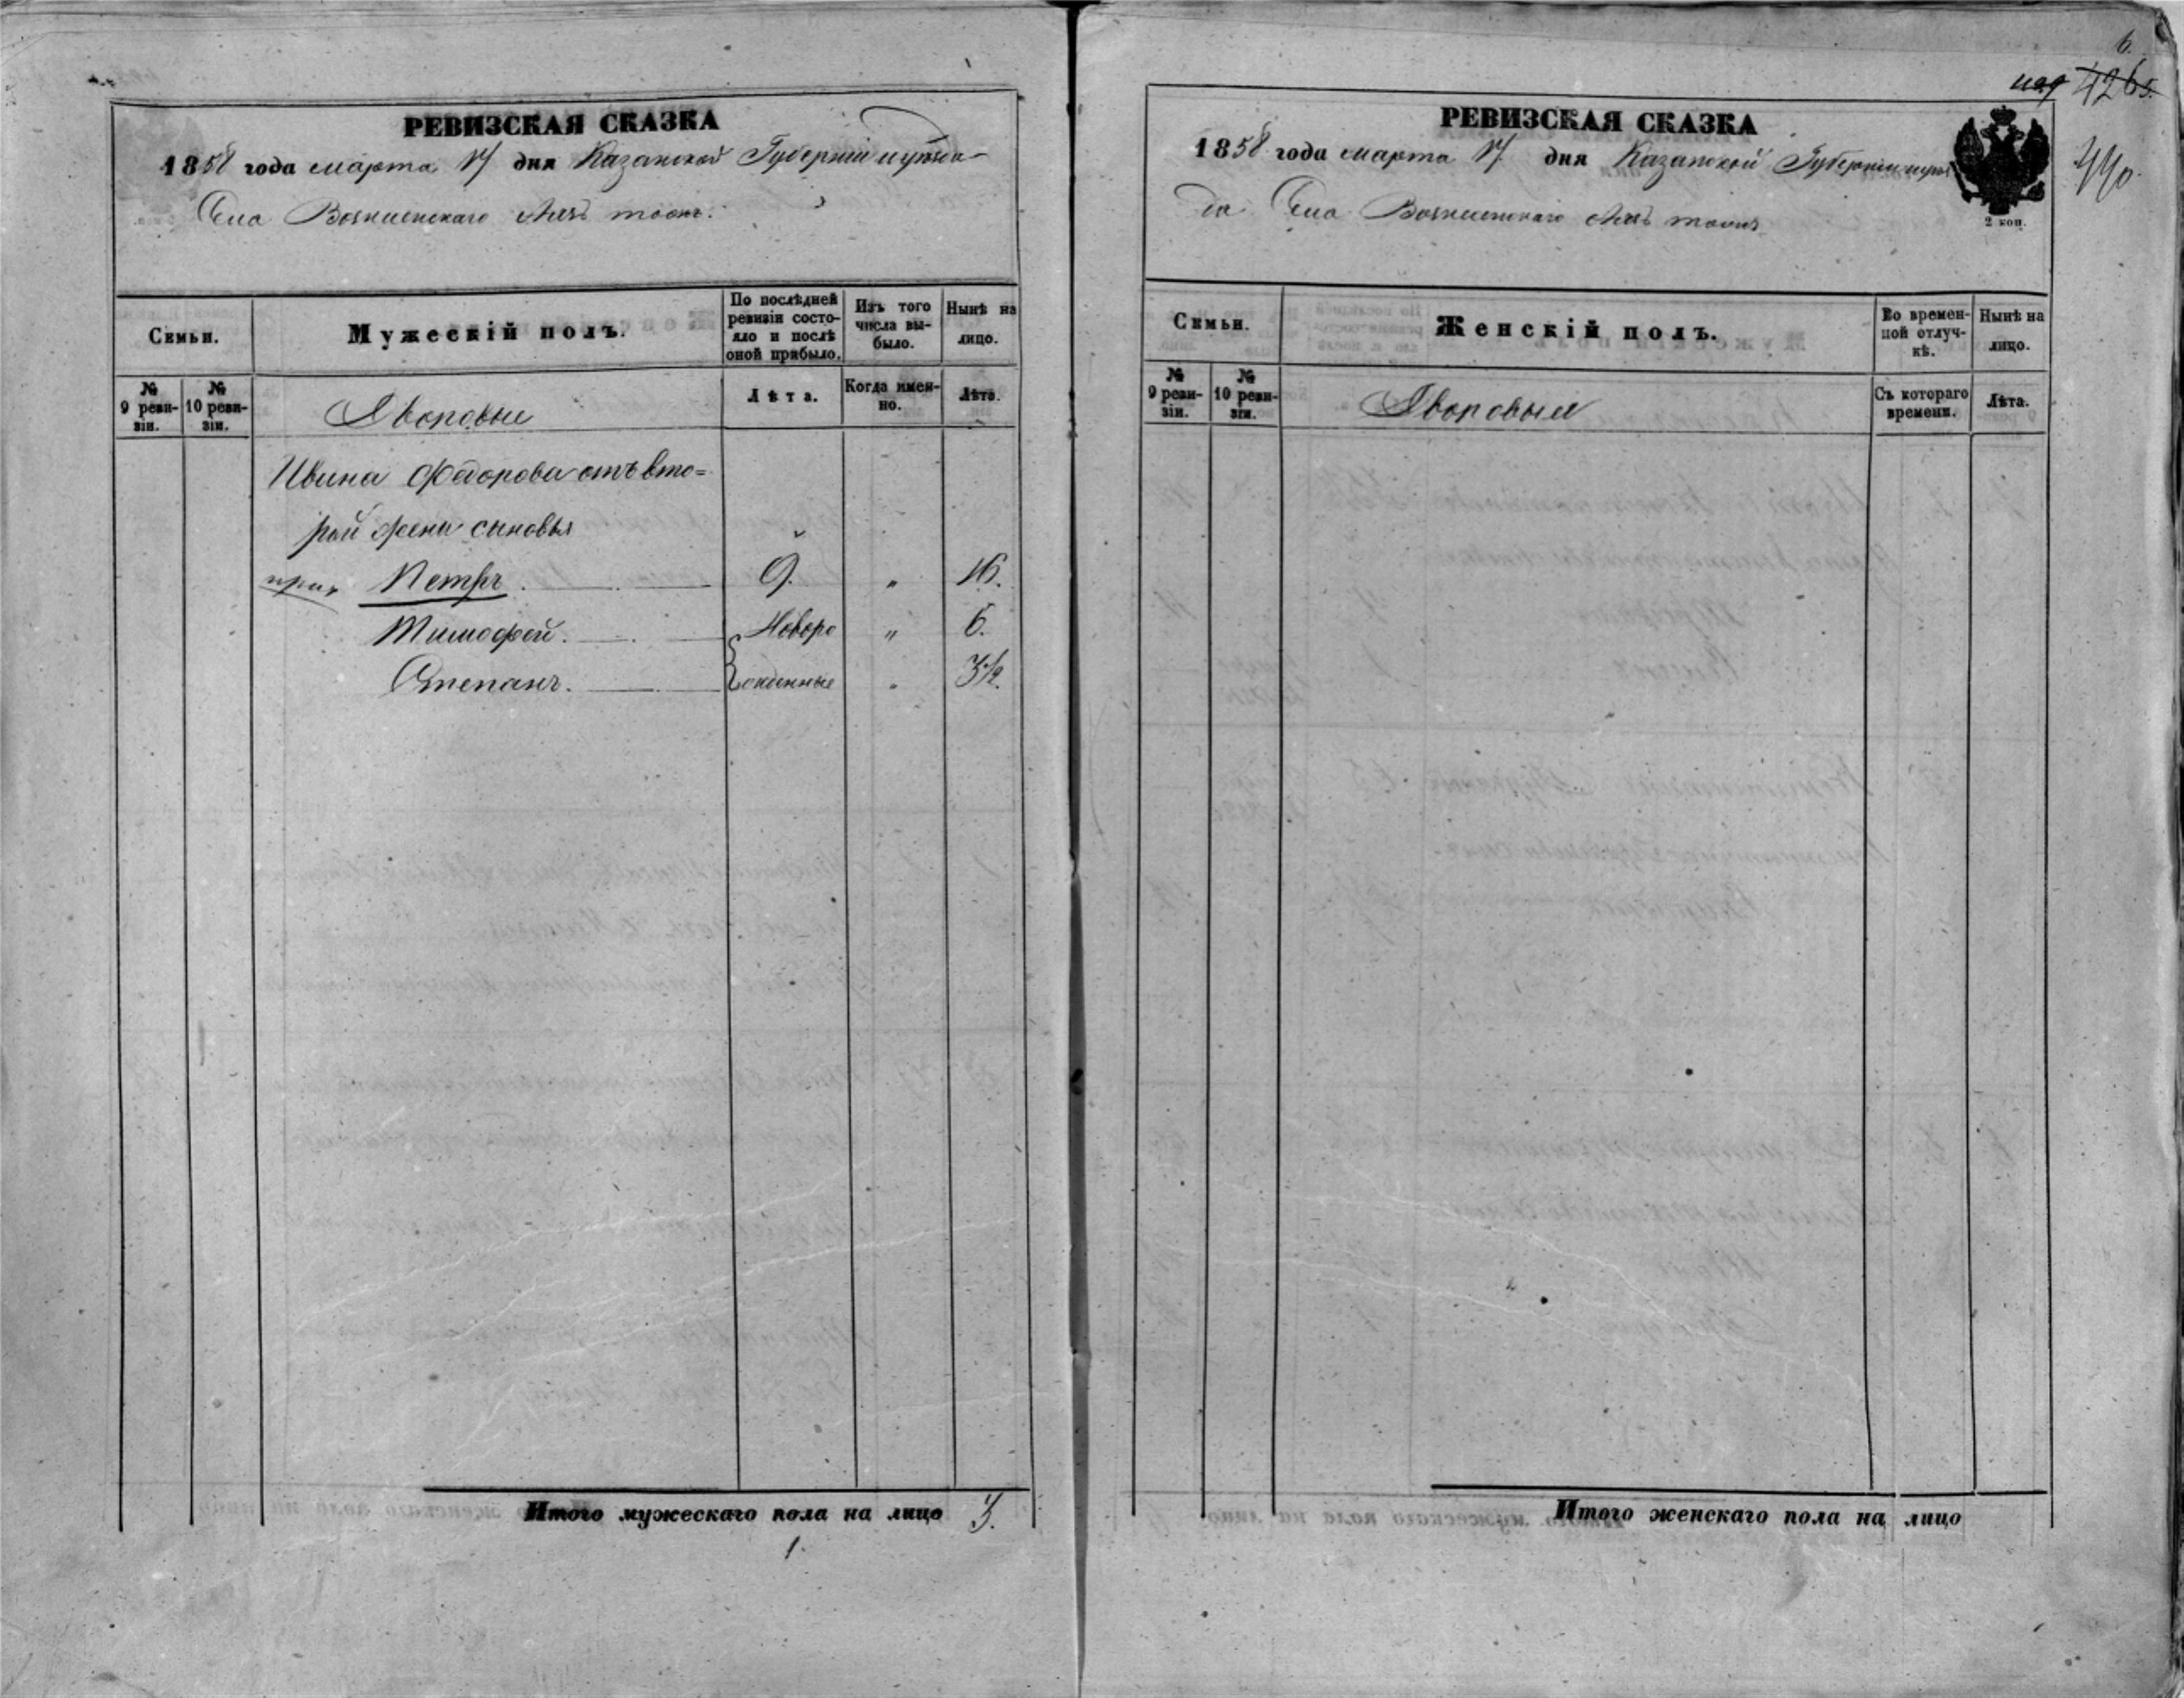 РЕВИЗСКАЯ СКАЗКА
1858 года марта 17 дня Казанской Губернии и уезда
Села Вознесенскаго
Семьи.
Мужескій полъ.
По послѣдней ревизіи состояло и послѣ оной прибыло.
Изъ того числа выбыло.
Нынѣ на лицо.
№ 9 ревизіи.
№ 10 ревизіи.
Дворовые
Лѣта.
Когда именно.
Лѣта.
Ивана Федорова отъ вто=
рой жены сыновья
Петръ. 9. " 16.
Тимофей. Новоро " 6.
Степанъ. жденные " 3½.
Итого мужескаго пола на лицо 3.
1.
6.
426
440.
РЕВИЗСКАЯ СКАЗКА
1858 года марта 17 дня Казанской Губернии и уез
да Села Вознесенскаго
2 коп.
Семьи.
Женскій полъ.
Во временной отлучкѣ.
Нынѣ на лицо.
№ 9 ревизіи.
№ 10 ревизіи.
Дворовыя
Съ котораго времени.
Лѣта.
Итого женскаго пола на лицо